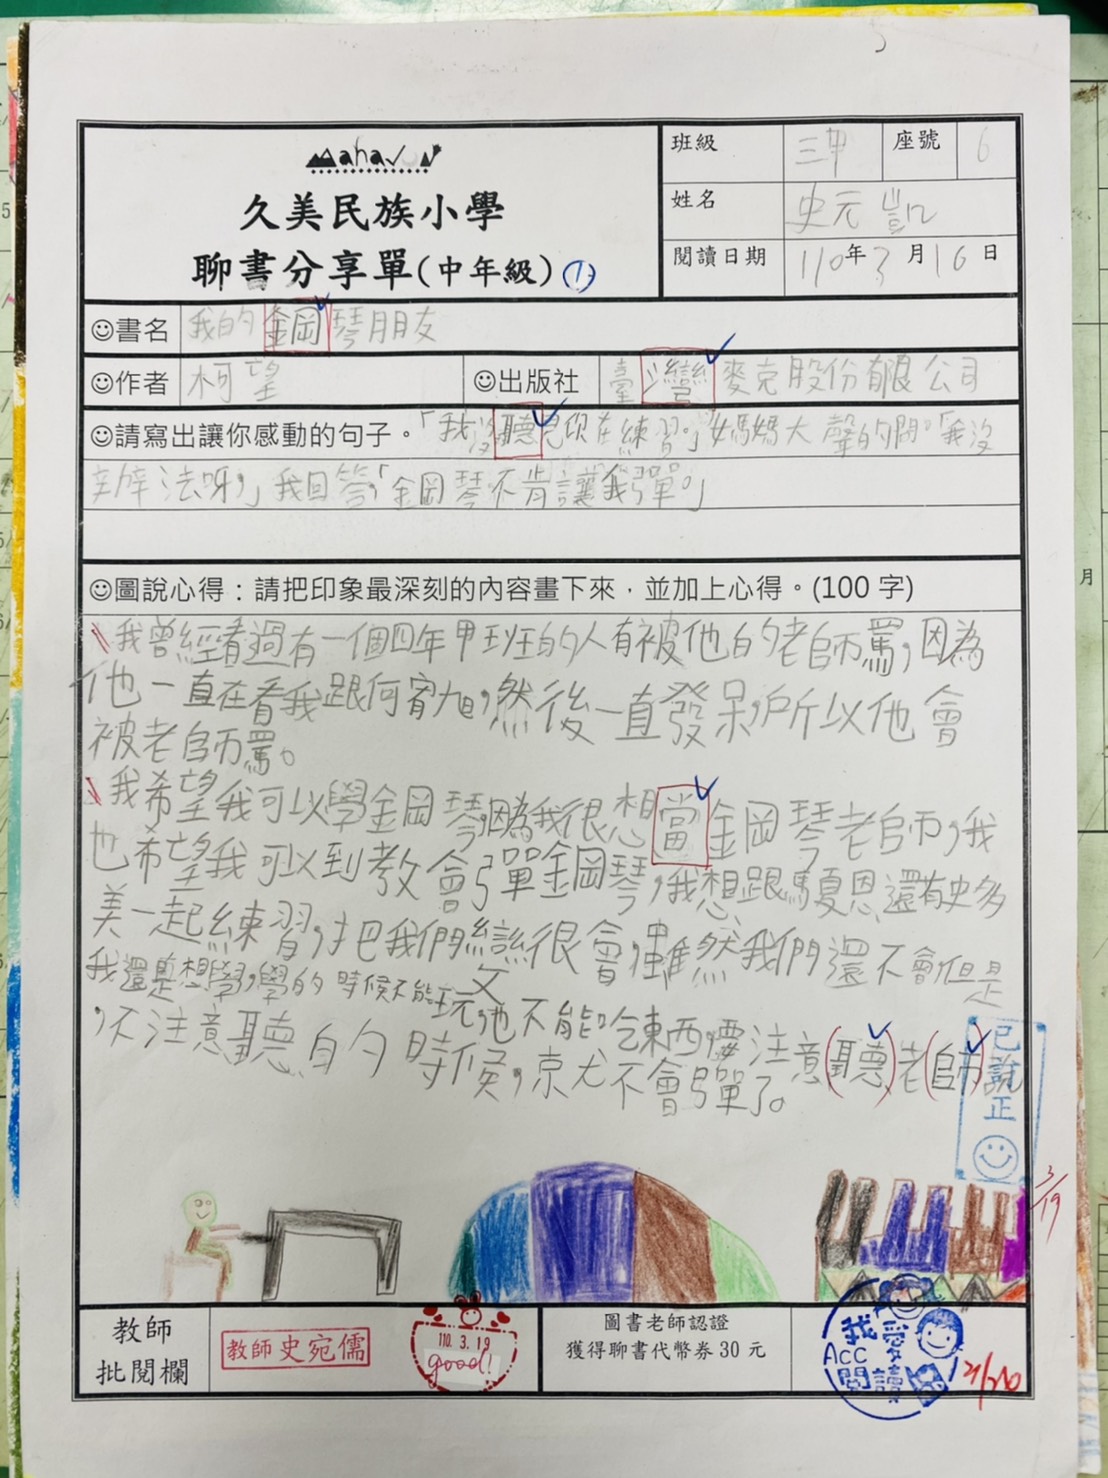 Mahavun
久美民族小學
聊書分享單(中年級) ①
班級 三甲 座號 6
姓名 史元凱
閱讀日期 110年3月16日
☺書名 我的鋼琴朋友
☺作者 柯望 ☺出版社 臺灣麥克股份有限公司
☺請寫出讓你感動的句子。「我沒聽見你在練習。」媽媽大聲的問。「我沒
辦法呀,」我回答,「鋼琴不肯讓我彈。」
☺圖說心得：請把印象最深刻的內容畫下來，並加上心得。(100字)
我曾經看過有一個四年甲班的人有被他的老師罵,因為
他一直在看我跟何宥旭,然後一直發呆,所以他會
被老師罵。
我希望我可以學鋼琴,因為我很想當鋼琴老師,我
也希望我可以到教會彈鋼琴,我想跟馬夏恩還有史多
美一起練習,把我們練很會,雖然我們還不會但是
我還是想學,學的時候不能玩,也不能吃東西,要注意(聽)老(師)說
,不注意聽的時候,就不會彈了。
已訂正
3/19
教師
批閱欄
教師 史宛儒
110.3.19
good!
圖書老師認證
獲得聊書代幣券30元
我愛
Acc
閱讀